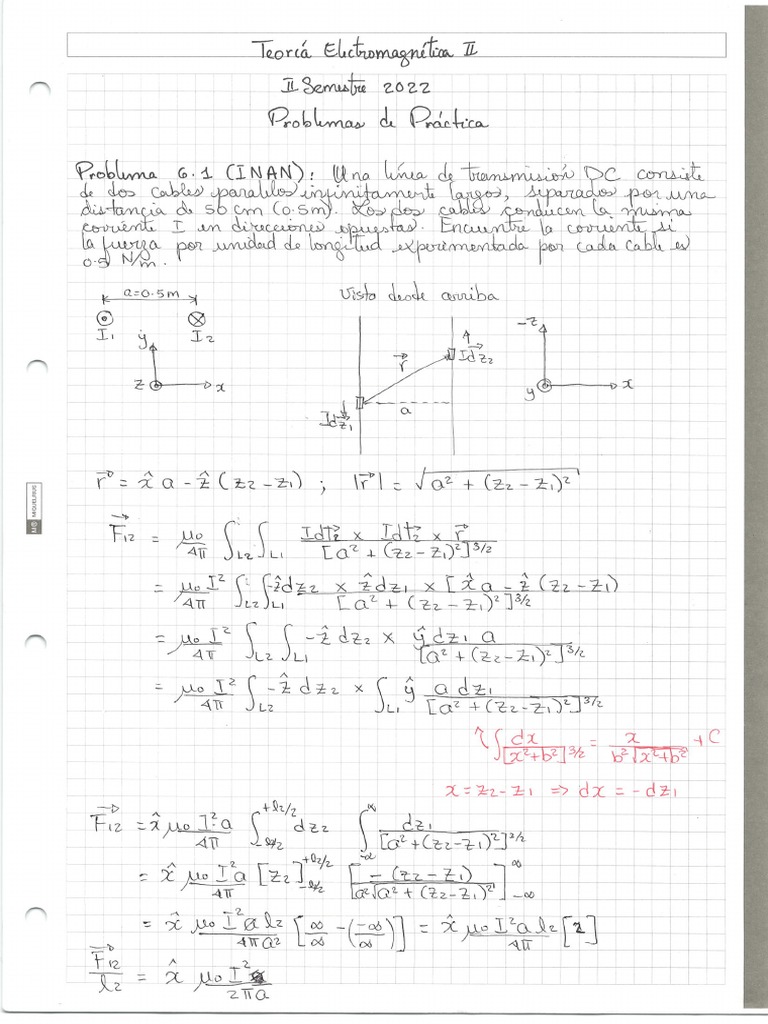 Teoría Electromagnética II
II Semestre 2022
Problemas de Práctica
Problema 6.1 (INAN): Una línea de transmisión DC consiste
de dos cables paralelos infinitamente largos, separados por una
distancia de 50 cm (0.5m). Los dos cables conducen la misma
corriente I en direcciones opuestas. Encuentre la corriente si
la fuerza por unidad de longitud experimentada por cada cable es
0.5 N/m.
a=0.5m
I1 I2
y
z x
Visto desde arriba
Idz2
r
a
Idz1
-z
y x
MIQUELRIUS
r = x̂ a - ẑ (z2 - z1) ; |r| = √(a² + (z2 - z1)²)
F12 = μ0/4π ∫L2 ∫L1 Idl2 × Idl2 × r / [a² + (z2 - z1)²]^3/2
= μ0 I²/4π ∫L2 ∫L1 -ẑ dz2 × ẑ dz1 × [x̂ a - ẑ (z2 - z1) / [a² + (z2 - z1)²]^3/2
= μ0 I²/4π ∫L2 ∫L1 -ẑ dz2 × ŷ dz1 a / [a² + (z2 - z1)²]^3/2
= μ0 I²/4π ∫L2 -ẑ dz2 × ∫L1 ŷ a dz1 / [a² + (z2 - z1)²]^3/2
∫ dx / [x² + b²]^3/2 = x / b²√(x² + b²) + C
x = z2 - z1 ⇒ dx = -dz1
F12 = x̂ μ0 I² a/4π ∫-l2/2^+l2/2 dz2 ∫-∞^∞ dz1 / [a² + (z2 - z1)²]^3/2
= x̂ μ0 I² a/4π [z2]-l2/2^+l2/2 [-(z2 - z1) / a²√(a² + (z2 - z1)²)]-∞^∞
= x̂ μ0 I² a l2/4πa² [∞/∞ - (-∞/∞)] = x̂ μ0 I² a l2/4π [2]
F12/l2 = x̂ μ0 I²/2πa